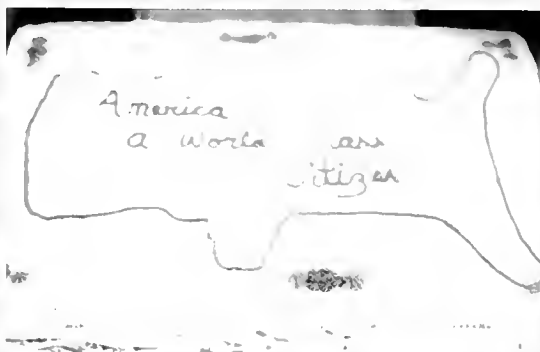 America
a World
Citizen